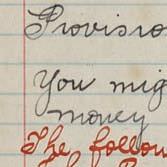 Provisio
You mig
money
The follow